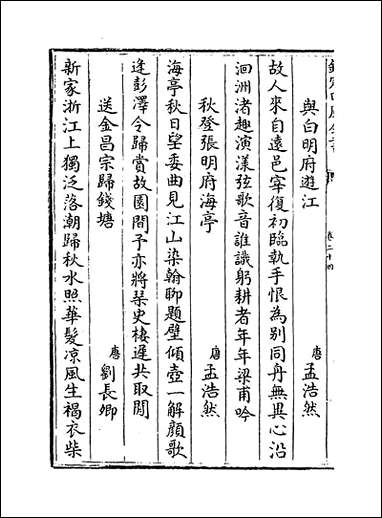 欽定四庫全書
卷二十四
與白明府遊江
唐 孟浩然
故人來自遠邑宰復初臨執手恨為別同舟無異心沿
洄洲渚趣演漾弦歌音誰識躬耕者年年梁甫吟
秋登張明府海亭
唐 孟浩然
海亭秋日望委曲見江山染翰聊題壁傾壺一解顏歌
逢彭澤令歸賞故園間予亦將琴史棲遲共取閒
送金昌宗歸錢塘
唐 劉長卿
新家浙江上獨泛落潮歸秋水照華髮凉風生褐衣柴